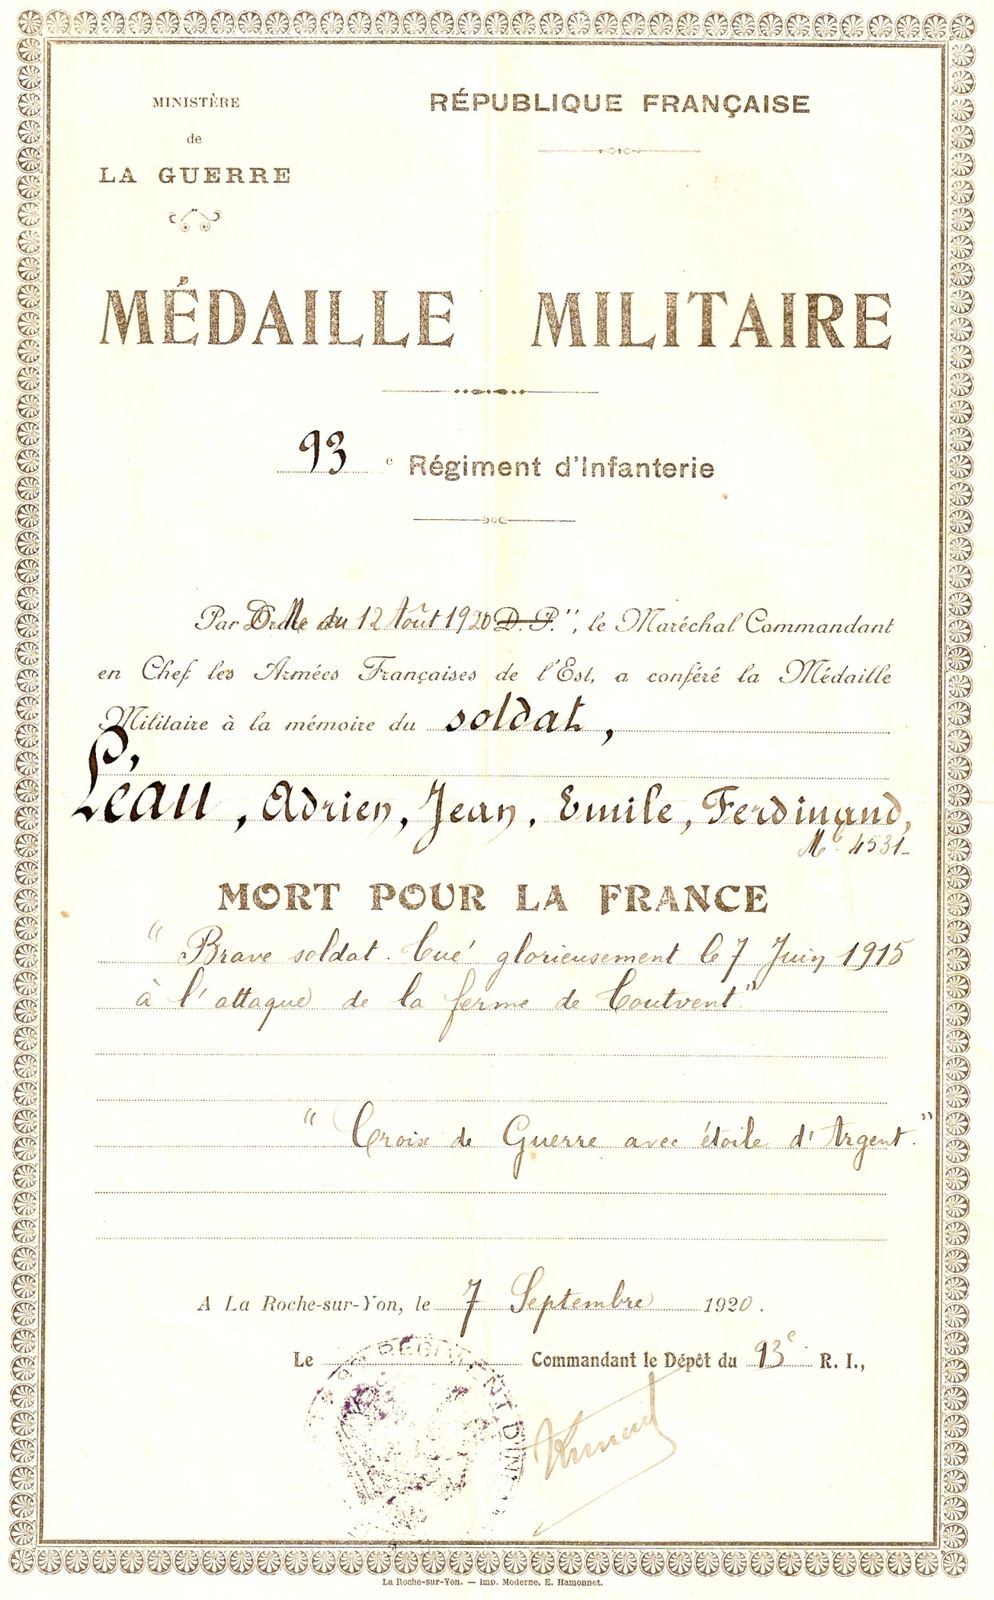 MINISTÈRE
de
LA GUERRE
RÉPUBLIQUE FRANÇAISE
MÉDAILLE MILITAIRE
93 e Régiment d'Infanterie
Par du 12 Août 1920 D. P.", le Maréchal Commandant
en Chef les Armées Françaises de l'Est, a conféré la Médaille
Militaire à la mémoire du soldat,
Léau, Adrien, Jean, Emile, Ferdinand,
Mle 4531
MORT POUR LA FRANCE
"Brave soldat. Tué glorieusement le 7 Juin 1915
à l'attaque de la ferme de Toutvent"
"Croix de Guerre avec étoile d'Argent."
A La Roche-sur-Yon, le 7 Septembre 1920.
Le Commandant le Dépôt du 93e R. I.,
RÉGIMENT D'IN
La Roche-sur-Yon. — Imp. Moderne, E. Hamonnet.